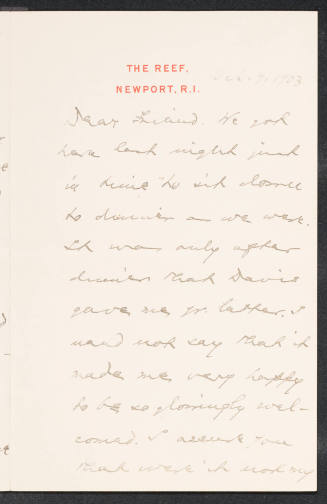 THE REEF,
NEWPORT, R.I.
1903
Dear Friend. We got
here last night just
in time to sit down
to dinner as we were.
It was only after
dinner that Davis
gave me yr. letter. I
need not say that it
made me very happy
to be so glowingly wel-
comed. I assure you
that were it not my